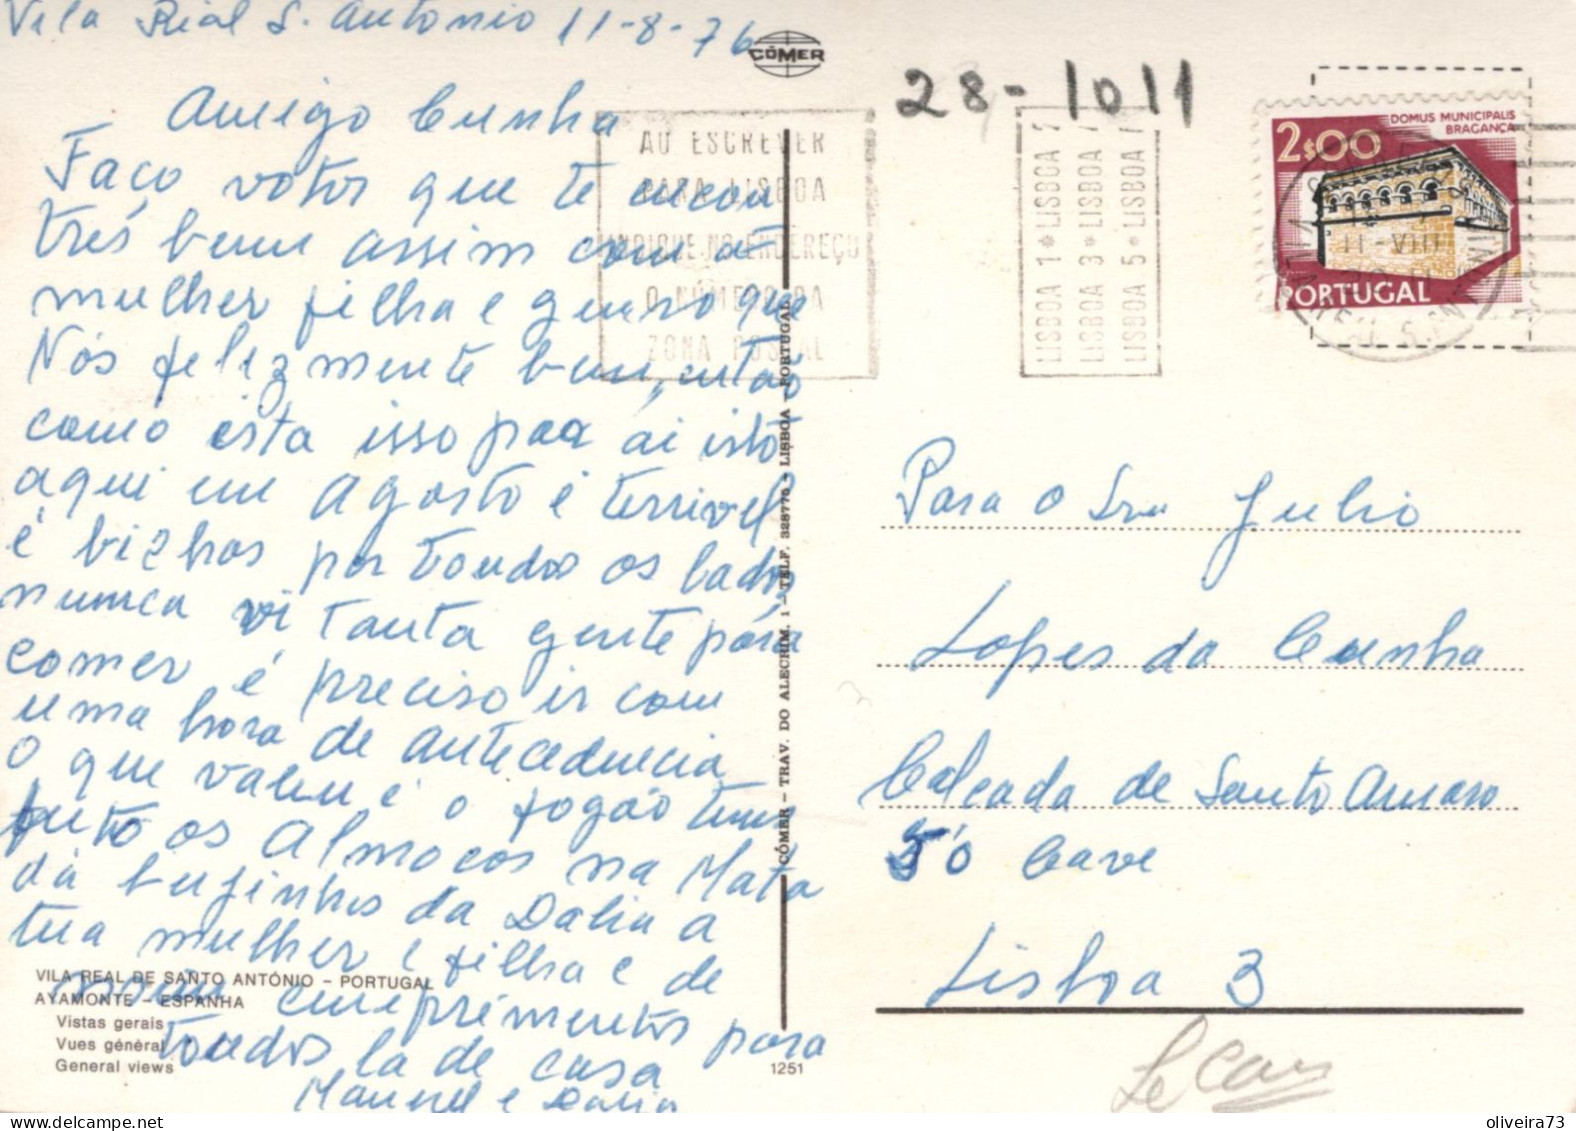 Vila Rial S. Antonio 11-8-76
CÓMER
28-1011
Amigo Cunha
Faço votos que te encon
três bem assim com at
mulher filha e genro que
Nós felizmente bem, então
como ésta isso paa ai istó
aqui em Agosto é terrivel
é bizhas por toudos os lados
nunca vi tanta gente pára
comer é preciso ir com
uma hora de antecedencia
o que valeu é o fogão tem
feito os Almocos na Mata
da beijinhos da Dalia a
tua mulher e filha e de
cumprémentos para
toudos la de casa
Manuel e Dalia
AO ESCREVER
PARA LISBOA
INDIQUE NO ENDEREÇO
O NÚMERO DA
ZONA POSTAL
LISBOA 1 * LISBOA 2
LISBOA 3 * LISBOA
LISBOA 5 * LISBOA
2$00
DOMUS MUNICIPALIS
BRAGANÇA
PORTUGAL
11-VIII
Para o Snr Julio
Lopes da Cunha
Calcada de Santo Amaro
50 Cave
Lisboa 3
CÓMER - TRAV. DO ALECRIM, 1 - TELF. 328775 - LISBOA - PORTUGAL
VILA REAL DE SANTO ANTÓNIO - PORTUGAL
AYAMONTE - ESPANHA
Vistas gerais
Vues général
General views
1251
oliveira73